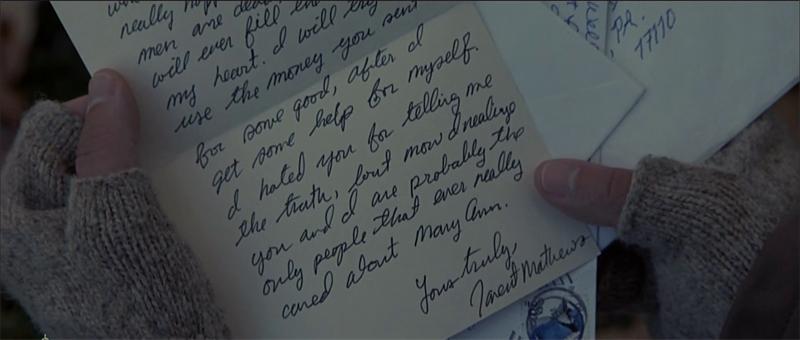 really happ
men are dead
will ever fill the
my heart. I will try
use the money you sent
for some good, after I
get some help for myself.
I hated you for telling me
the truth, but now I realize
you and I are probably the
only people that ever really
cared about Mary Ann.
Yours truly,
Janet Mathews
PA.
17110